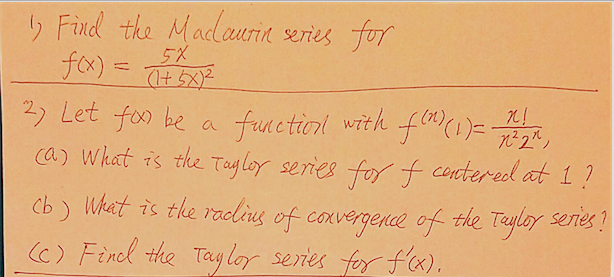 1) Find the Maclaurin series for
f(x) = 5x / (1+5x)²
2) Let f(x) be a function with f⁽ⁿ⁾(1) = n! / n² 2ⁿ,
(a) What is the Taylor series for f centered at 1?
(b) What is the radius of convergence of the Taylor series?
(c) Find the Taylor series for f'(x).